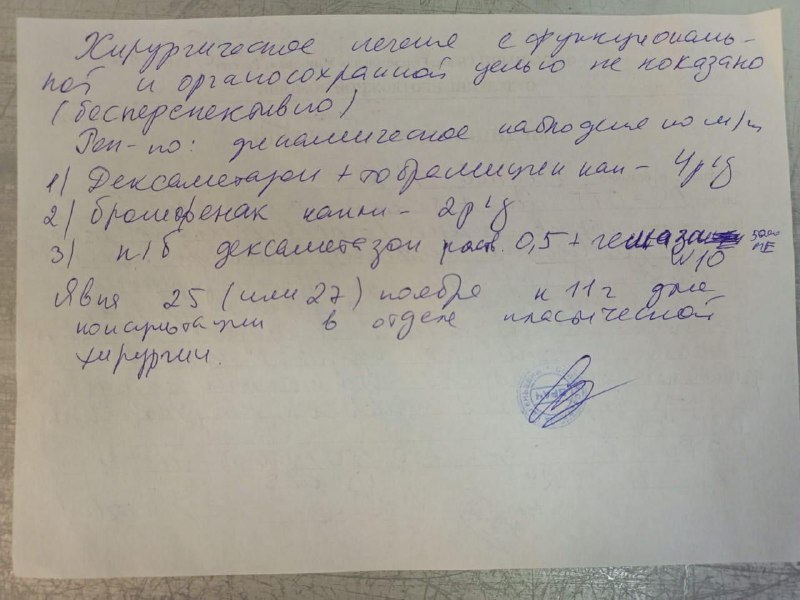 Хирургическое лечение с функциональ-
ной и органосохранной целью не показано
(бесперспективно)
Рек-но: динамическое наблюдение по м/ж
1) Дексаметазон + тобрамицин кап - 4 р/д
2) бромфенак капли - 2 р/д
3) п/б дексаметазон раств. 0,5 + гемаза 5000 МЕ
N10
Явка 25 (или 27) ноября к 11 г для
консультации в отделе пластической
хирургии.